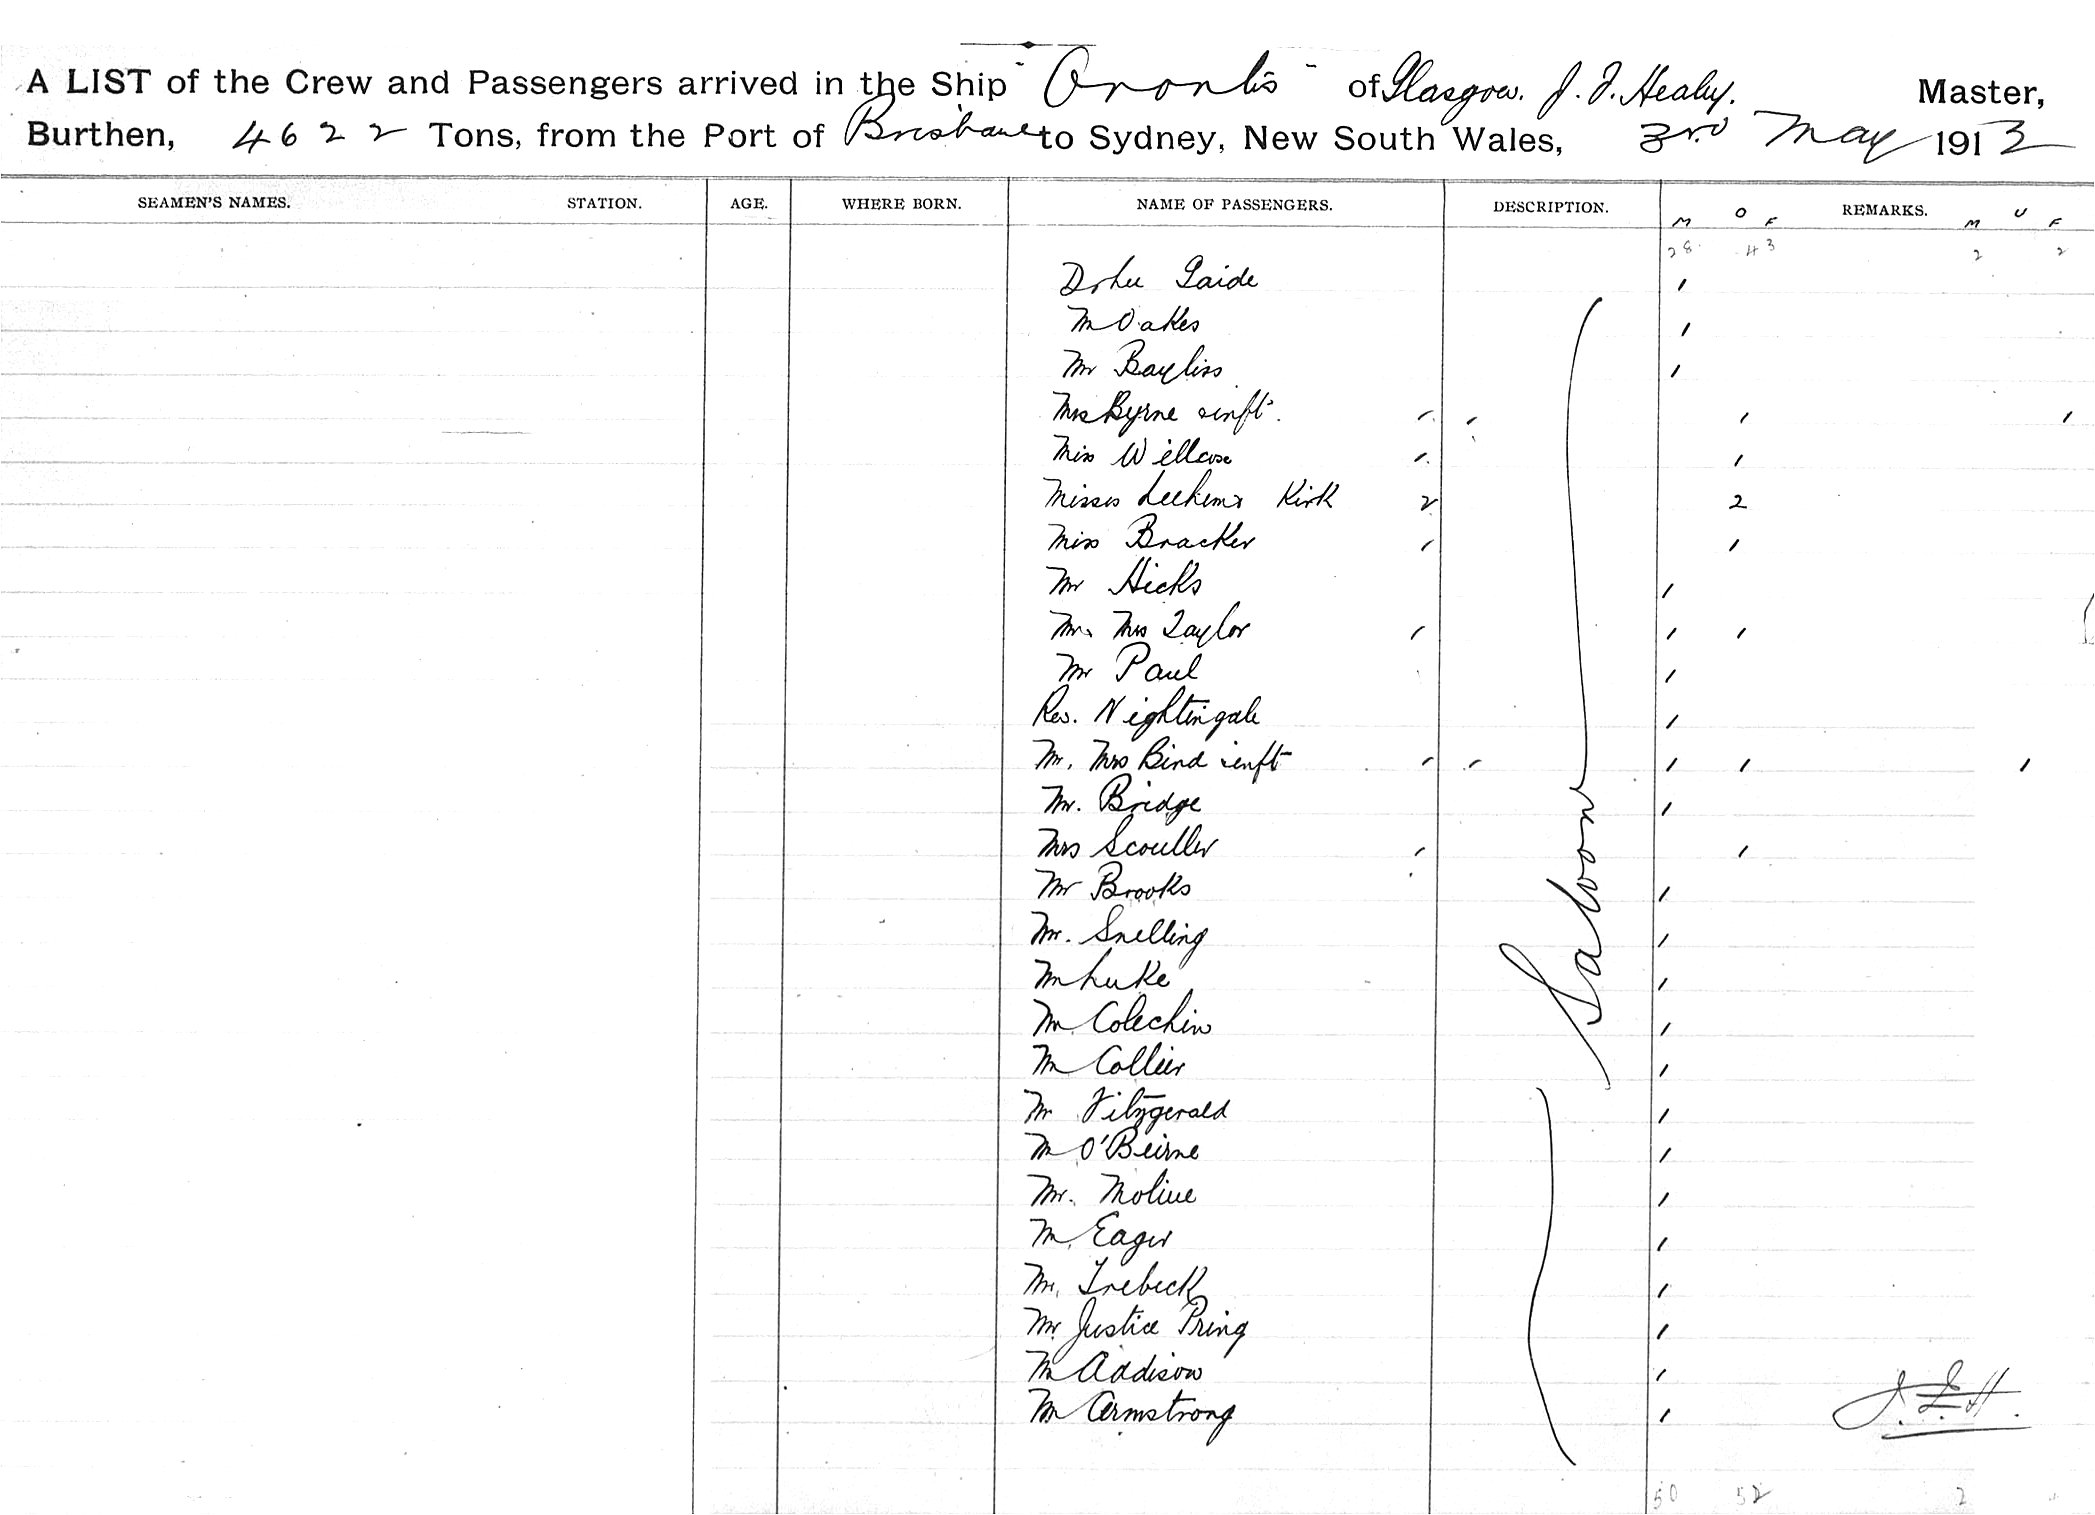 A LIST of the Crew and Passengers arrived in the Ship "Orontes" of Glasgow. J. F. Healey. Master,
Burthen, 4622 Tons, from the Port of Brisbane to Sydney, New South Wales, 3rd May 1913
SEAMEN'S NAMES. STATION. AGE. WHERE BORN. NAME OF PASSENGERS. DESCRIPTION. REMARKS.
M O F M U F
28 43 2 2
Gaide /
M Oakes /
Mr Bayliss /
Mrs Byrne & inft. / / / /
Miss Willcox / /
Misses & Kirk 2 2
Miss Bracker / /
Mr Hicks /
Mr. Mrs Taylor / / /
Mr Paul /
Rev. Nightingale /
Mr. Mrs Bind & inft / / / / /
Mr. Bridge /
Mrs Scouller / /
Mr Brooks /
Mr. Snelling /
M Luke /
M Colechin /
M Collier /
Mr Fitzgerald /
M O'Beirne /
Mr. Moline /
M. Eager /
Mr. Trebeck /
Mr. Justice Pring /
M Addison /
M Armstrong /
Saloon
J.F.H.
50 52 2